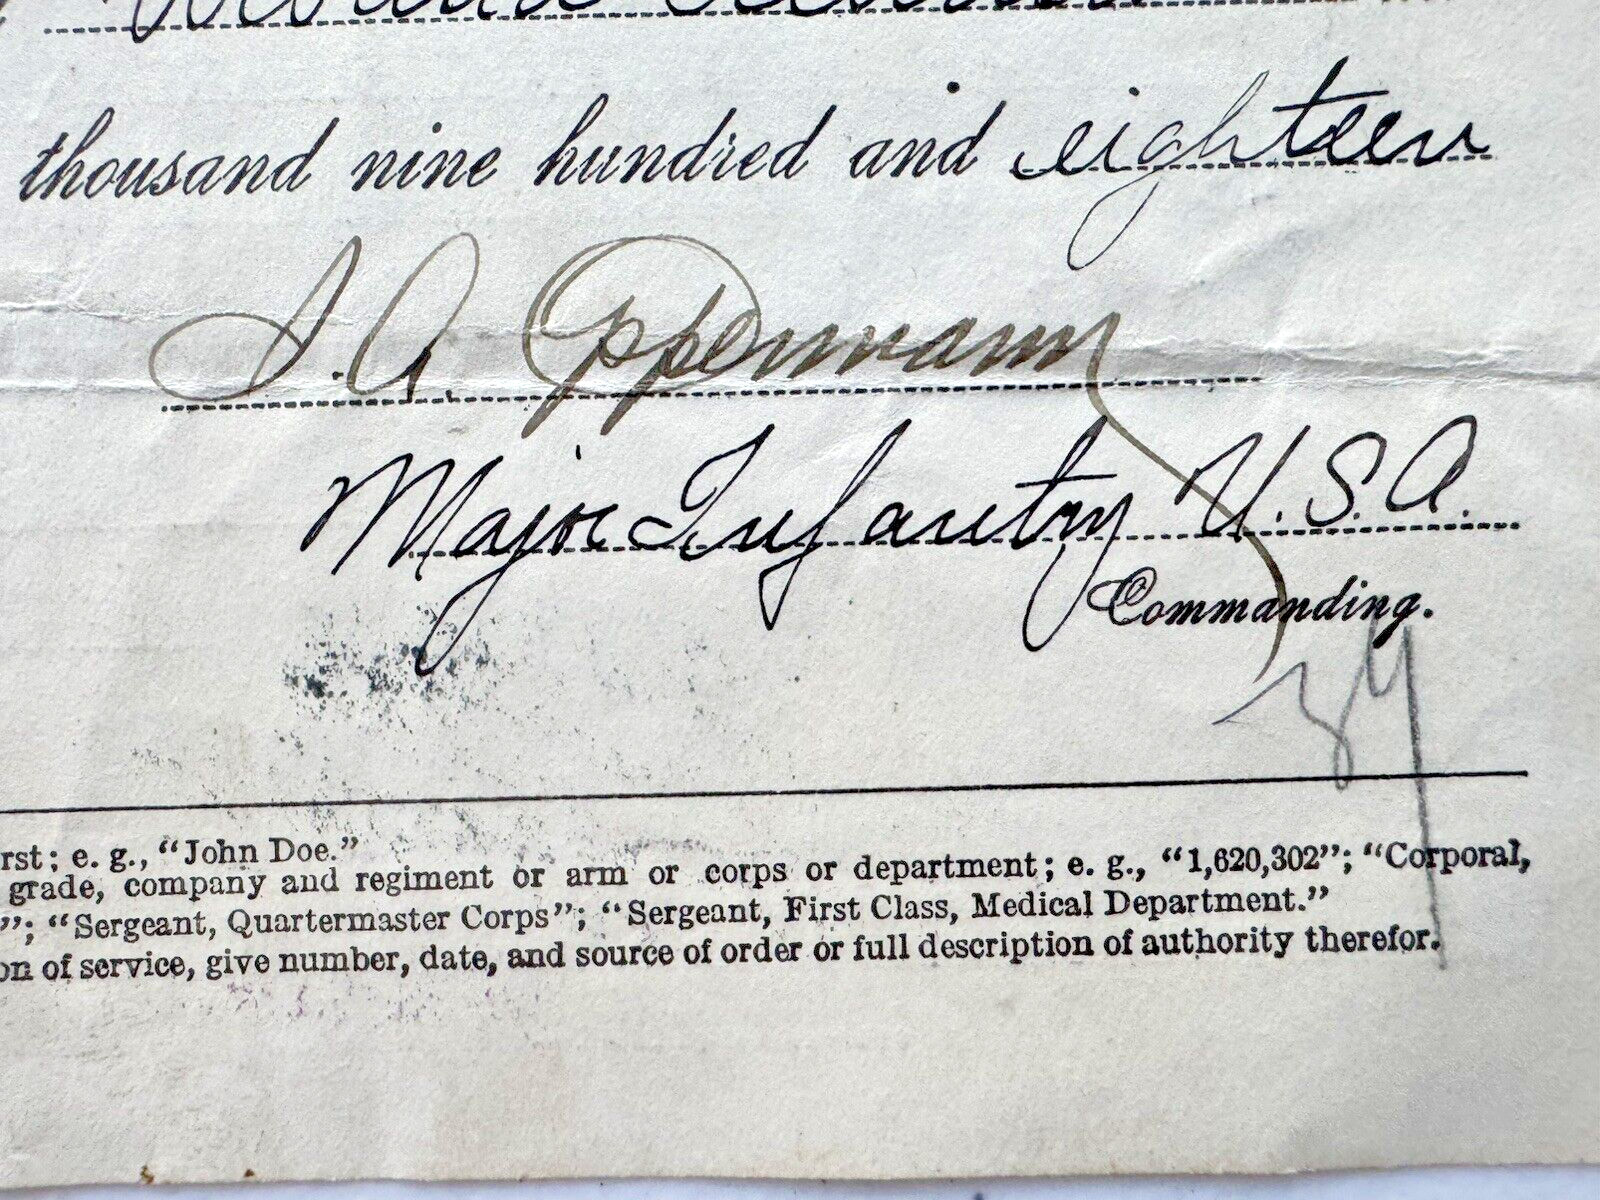 thousand nine hundred and eighteen
J. A. Oppermann
Major Infantry U.S.A.
Commanding.
39
rst; e. g., “John Doe.”
grade, company and regiment or arm or corps or department; e. g., “1,620,302”; “Corporal,
”; “Sergeant, Quartermaster Corps”; “Sergeant, First Class, Medical Department.”
on of service, give number, date, and source of order or full description of authority therefor.